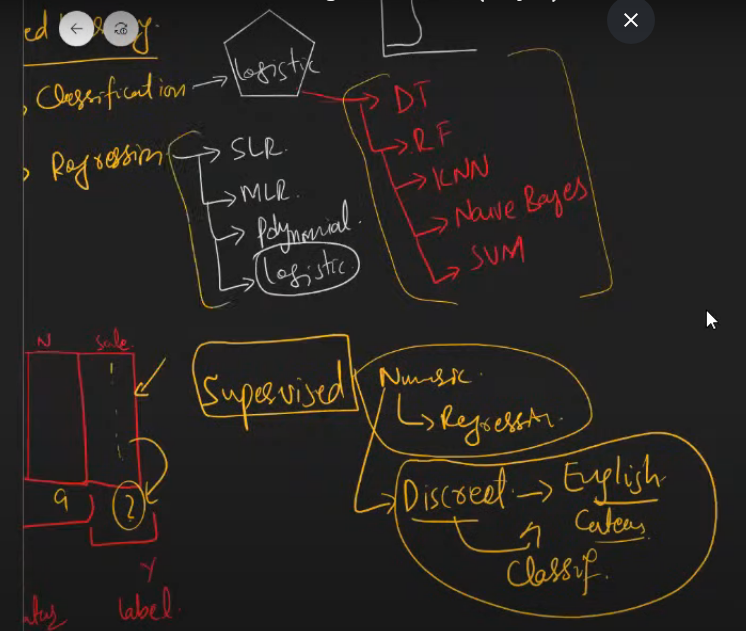 ed
y.
Classification → Logistic
→ DT
→ RF
→ KNN
→ Naive Bayes
→ SVM
Regression → SLR.
→ MLR.
→ Polynomial.
→ Logistic.
N Sale
9 ?
Y
label.
Supervised
Numeric.
→ Regression.
Discreet. → English
Classif.